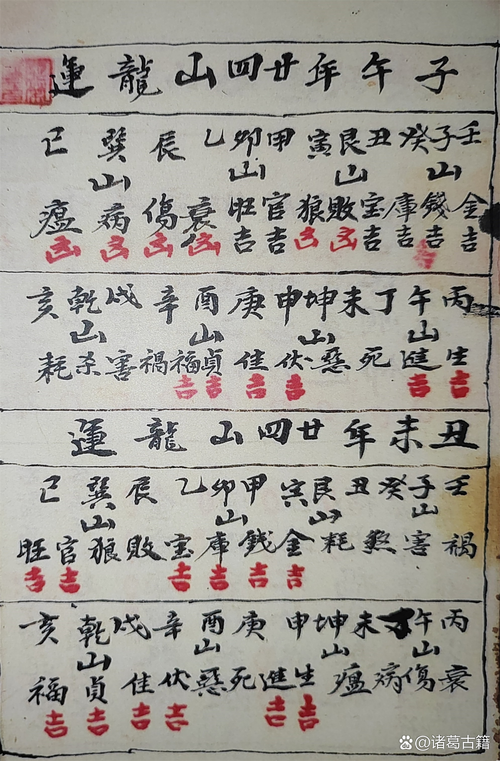 子午年廿四山龍運
壬子癸丑艮寅甲卯乙辰巽巳
山山山山
金錢庫宝敗狼官旺衰傷病瘟
吉吉吉吉凶凶吉吉凶凶凶凶
丙午丁未坤申庚酉辛戌乾亥
山山山山
生進死惡伏佳貞福禍害杀耗
吉吉吉吉吉吉
丑未年廿四山龍運
壬子癸丑艮寅甲卯乙辰巽巳
山山山山
禍害煞耗金錢庫宝敗狼官旺
吉吉吉吉吉吉
丙午丁未坤申庚酉辛戌乾亥
山山山山
衰傷病瘟生進死惡伏佳貞福
吉吉吉吉吉吉
@诸葛古籍